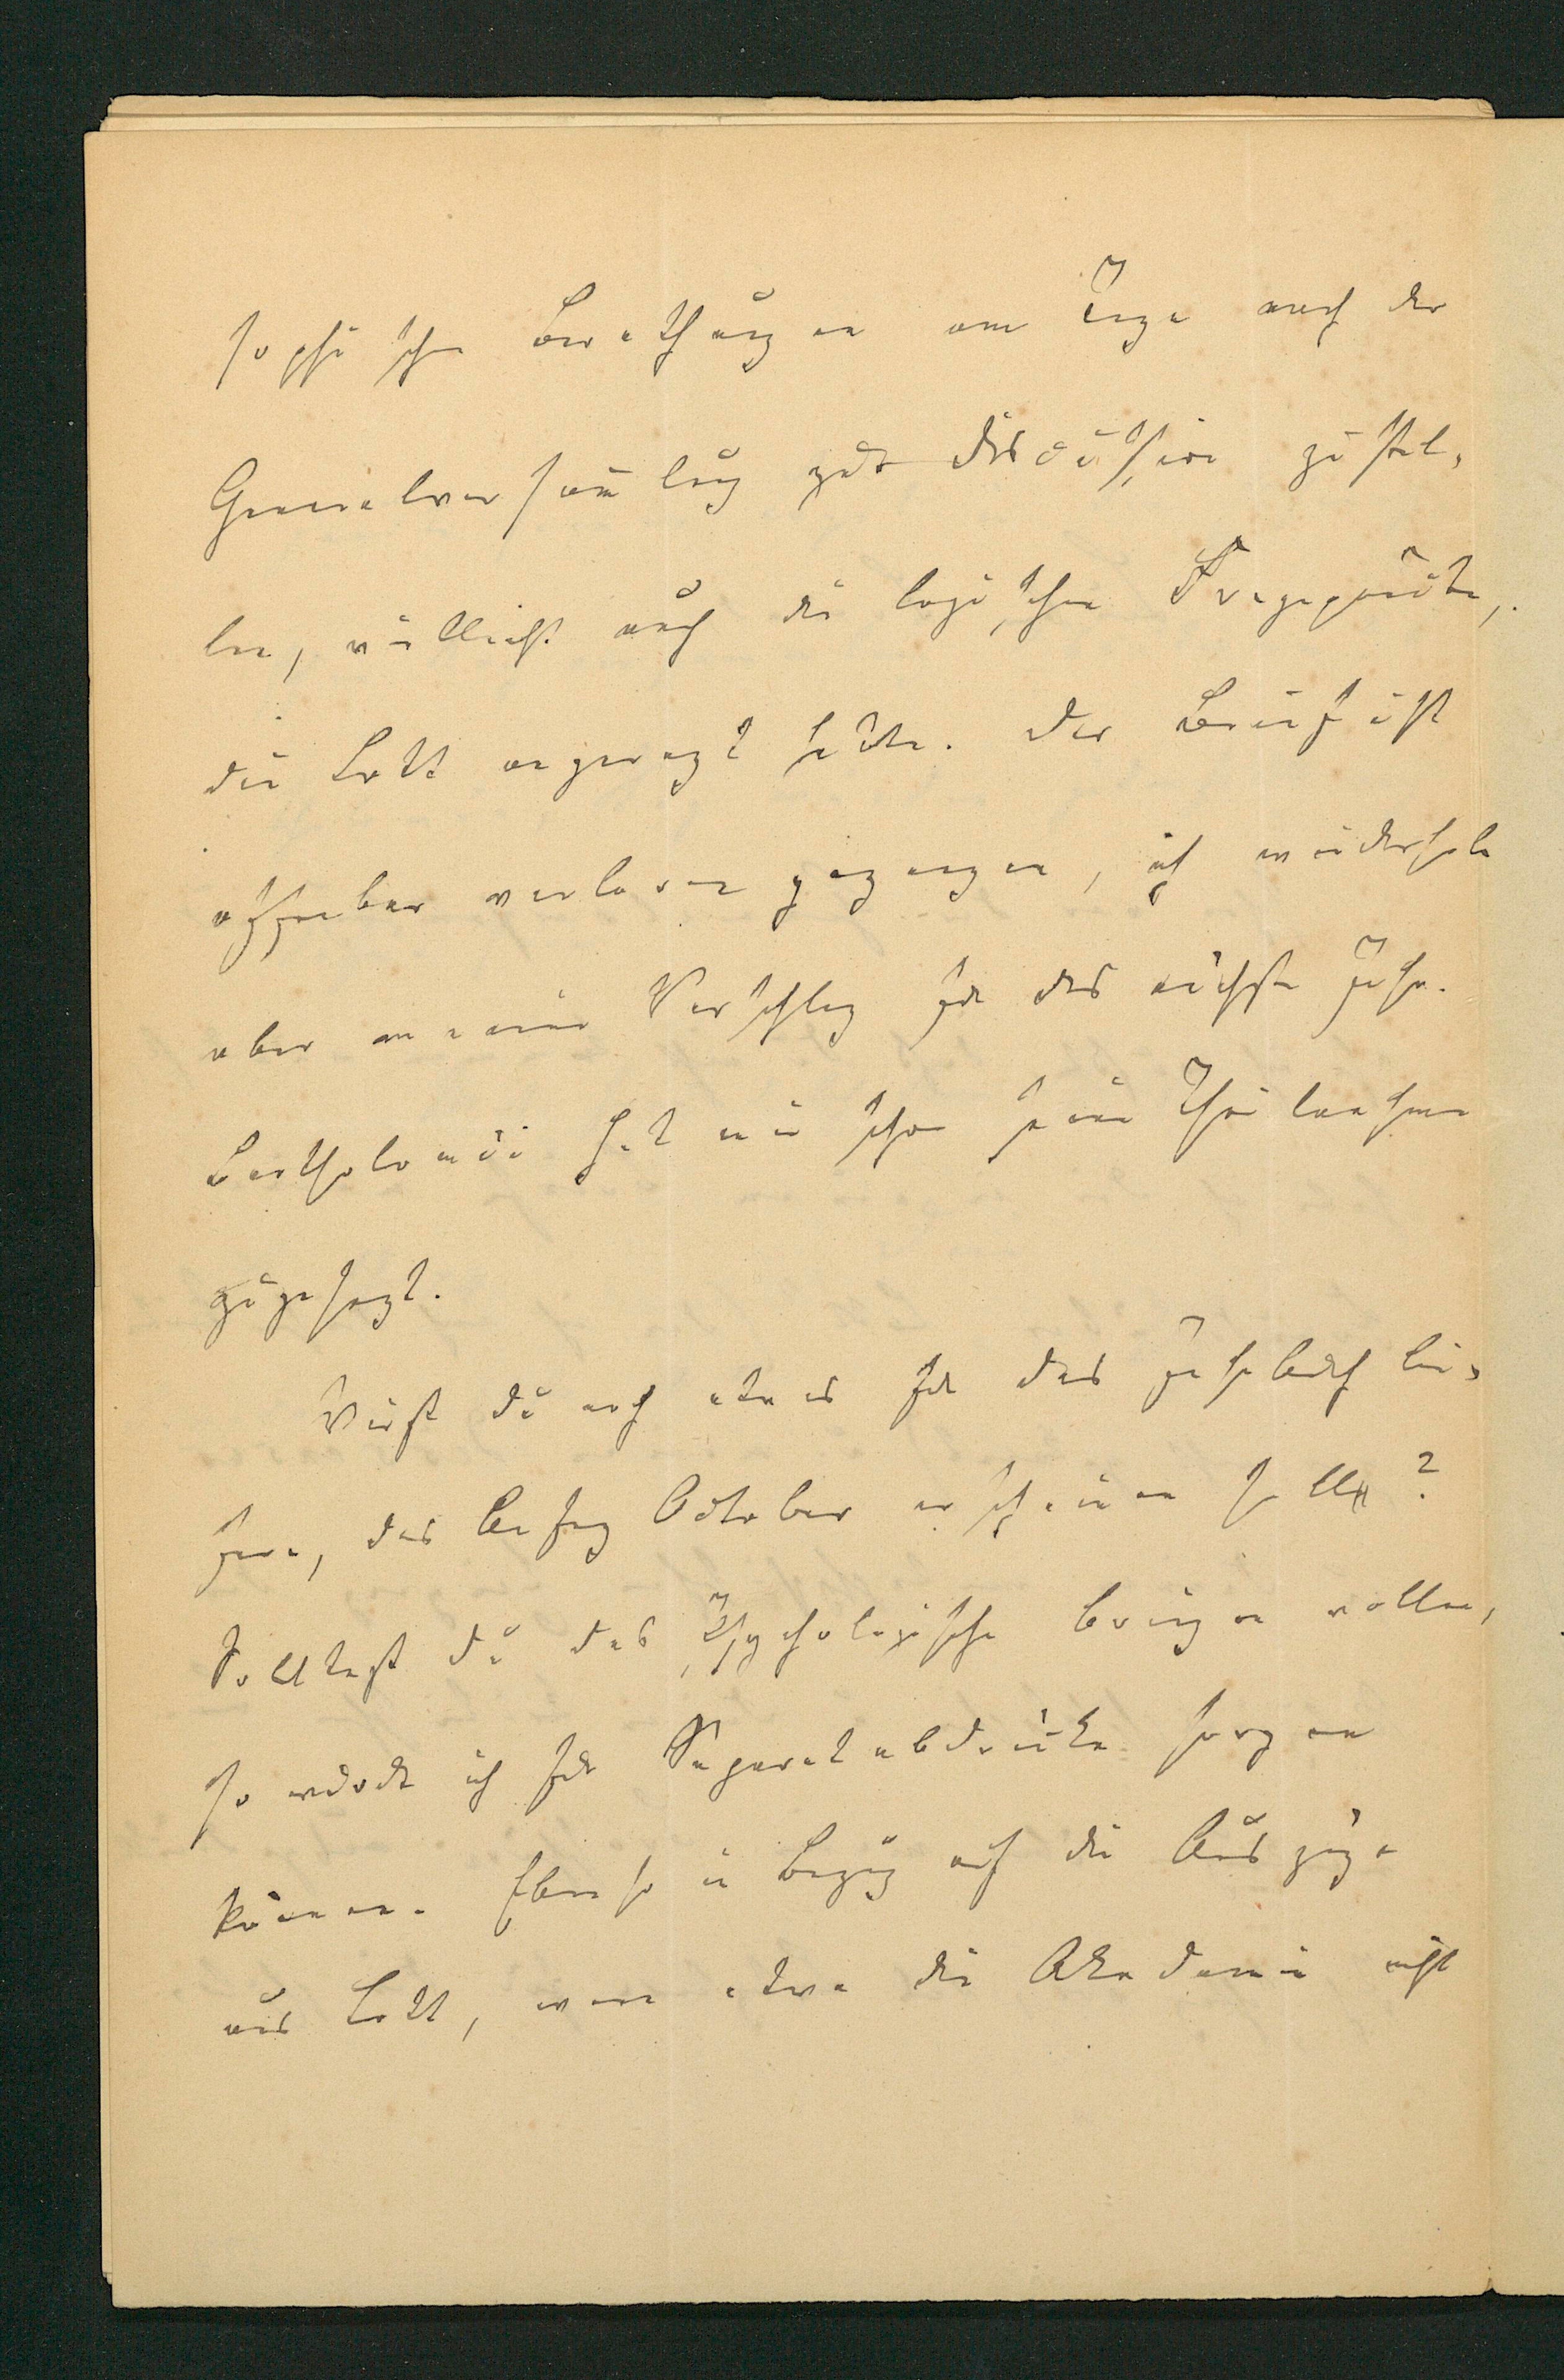 sophischen Berathungen am Tage nach der
Generalversam̅lung zur Discussion zu stel-
len, vielleicht auch die logischen Fragepunkte,
die Lott angeregt hatte. Der Brief ist
offenbar verloren gegangen, ich wiederhole
aber meinen Vorschlag für das nächste Jahr.
Bartholomäi hat mir schon seine Theilnahme
zugesagt.
Wirst du noch etwas für das Jahrbuch lie-
fern, das Anfang October erscheinen sollte?
Solltest du das Psychologische bringen wollen,
so würde ich für Separatabdrücke sorgen
können. Ebenso in Bezug auf die Auszüge
aus Lott, wenn etwa die Akademie nicht